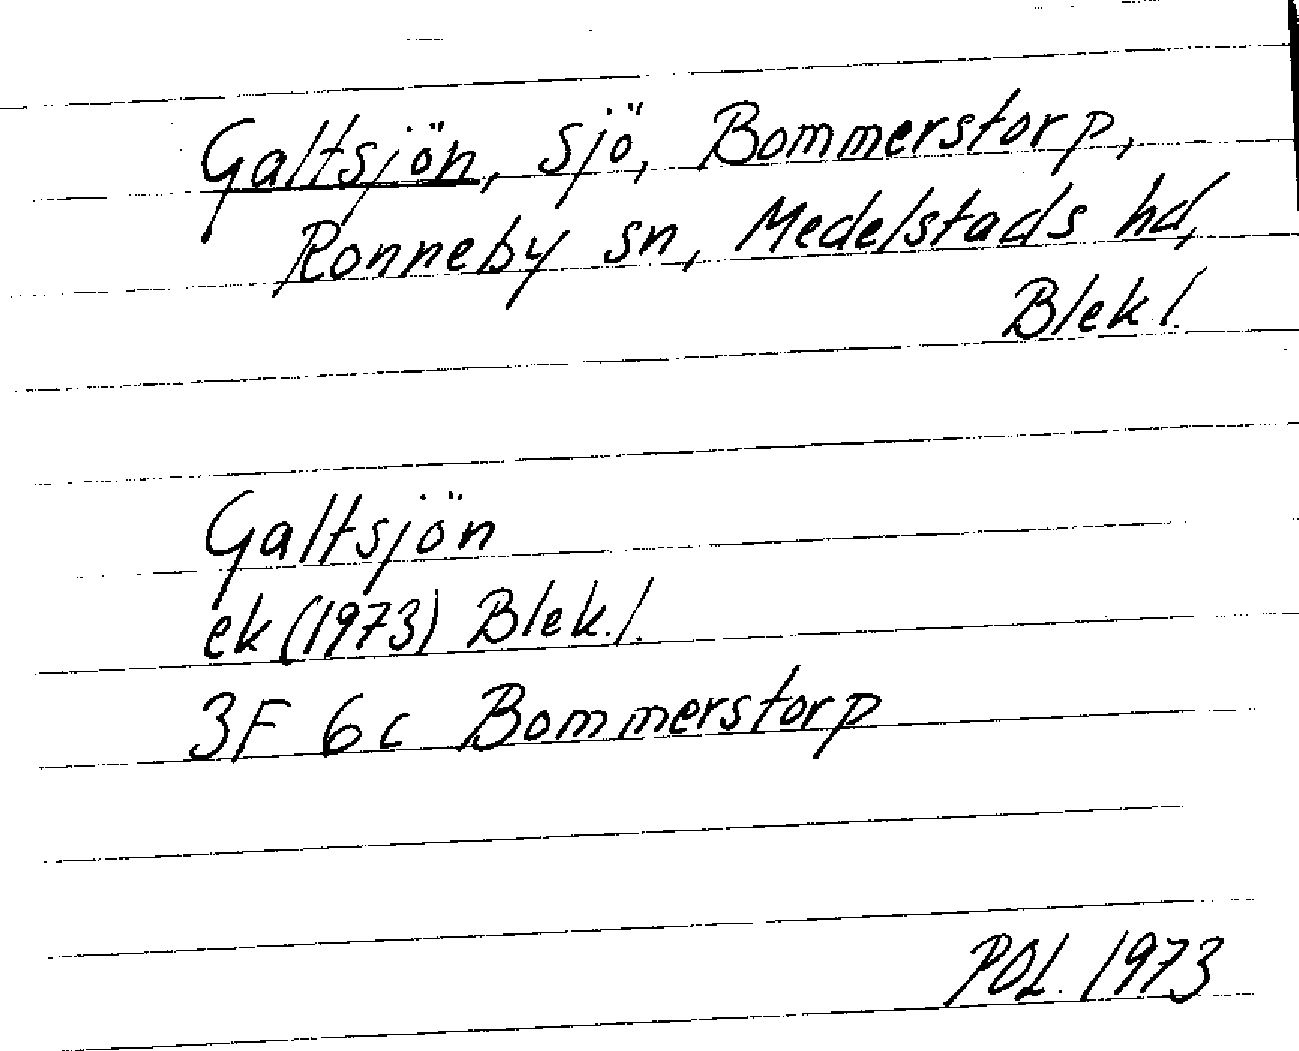 Galtsjön, sjö, Bommerstorp,
Ronneby sn, Medelstads hd,
Blek l.
Galtsjön
ek (1973) Blek. l.
3F 6c Bommerstorp
POL. 1973